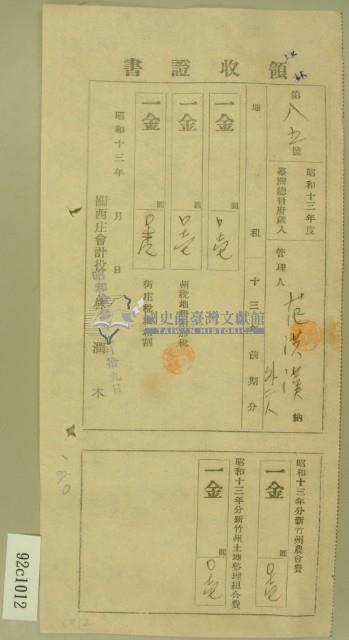 領收證書
第八五號
昭和十三年度
臺灣總督府歲入
管理人
范洪漢 納
外二人
地租十三年前期分
一金 圓
一金 圓
州稅地租附加稅
一金 圓
街庄稅地租割
昭和十三年 月 日
關西庄會計役
潤木
國史館臺灣文獻館
昭和十三年分新竹州農會費
一金 圓
昭和十三年分新竹州土地整理組合費
一金 圓
92c1012